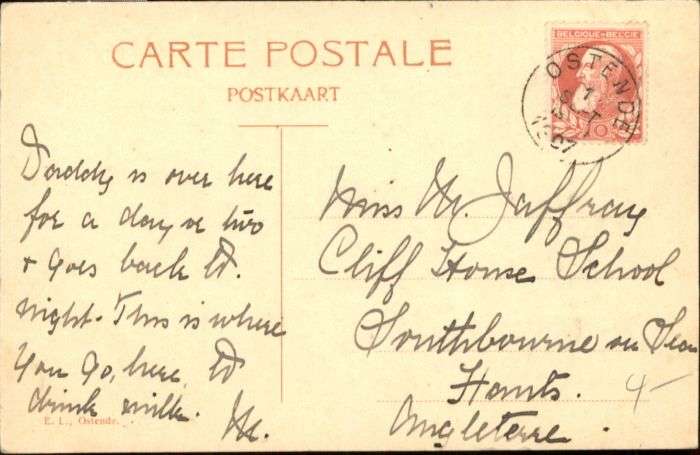 CARTE POSTALE
POSTKAART
BELGIQUE·BELGIË
10
OSTENDE
1
1907
Daddy is over here
for a day or two
+ goes back to
night. This is where
you go, here, to
drink milk.
M.
E. L., Ostende.
Miss M. Jaffray
Cliff House School
Southbourne on Sea
Hants.
Angleterre.
4-